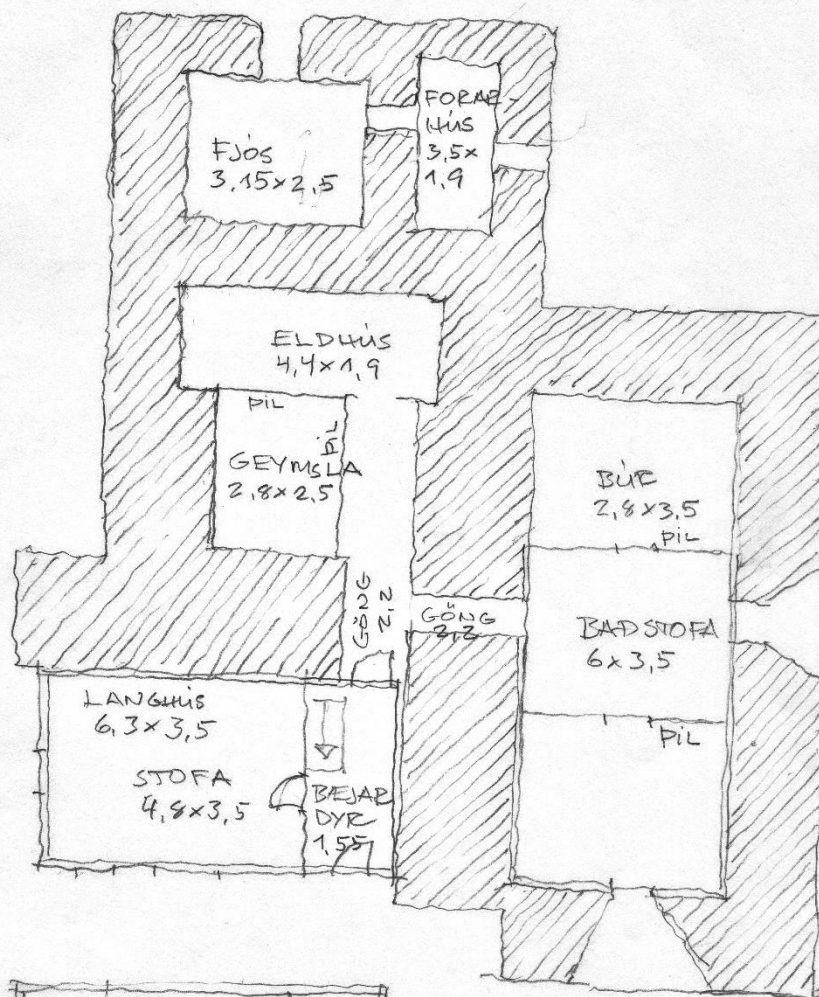 FJÓS
3,15x2,5
FORAE-
HÚS
3,5x
1,9
ELDHÚS
4,4x1,9
ÞIL
ÞIL
GEYMSLA
2,8x2,5
BÚR
2,8x3,5
ÞIL
GÖNG
2,2
GÖNG
2,2
BAÐSTOFA
6x3,5
ÞIL
LANGHÚS
6,3x3,5
STOFA
4,8x3,5
BÆJAR
DYR
1,55